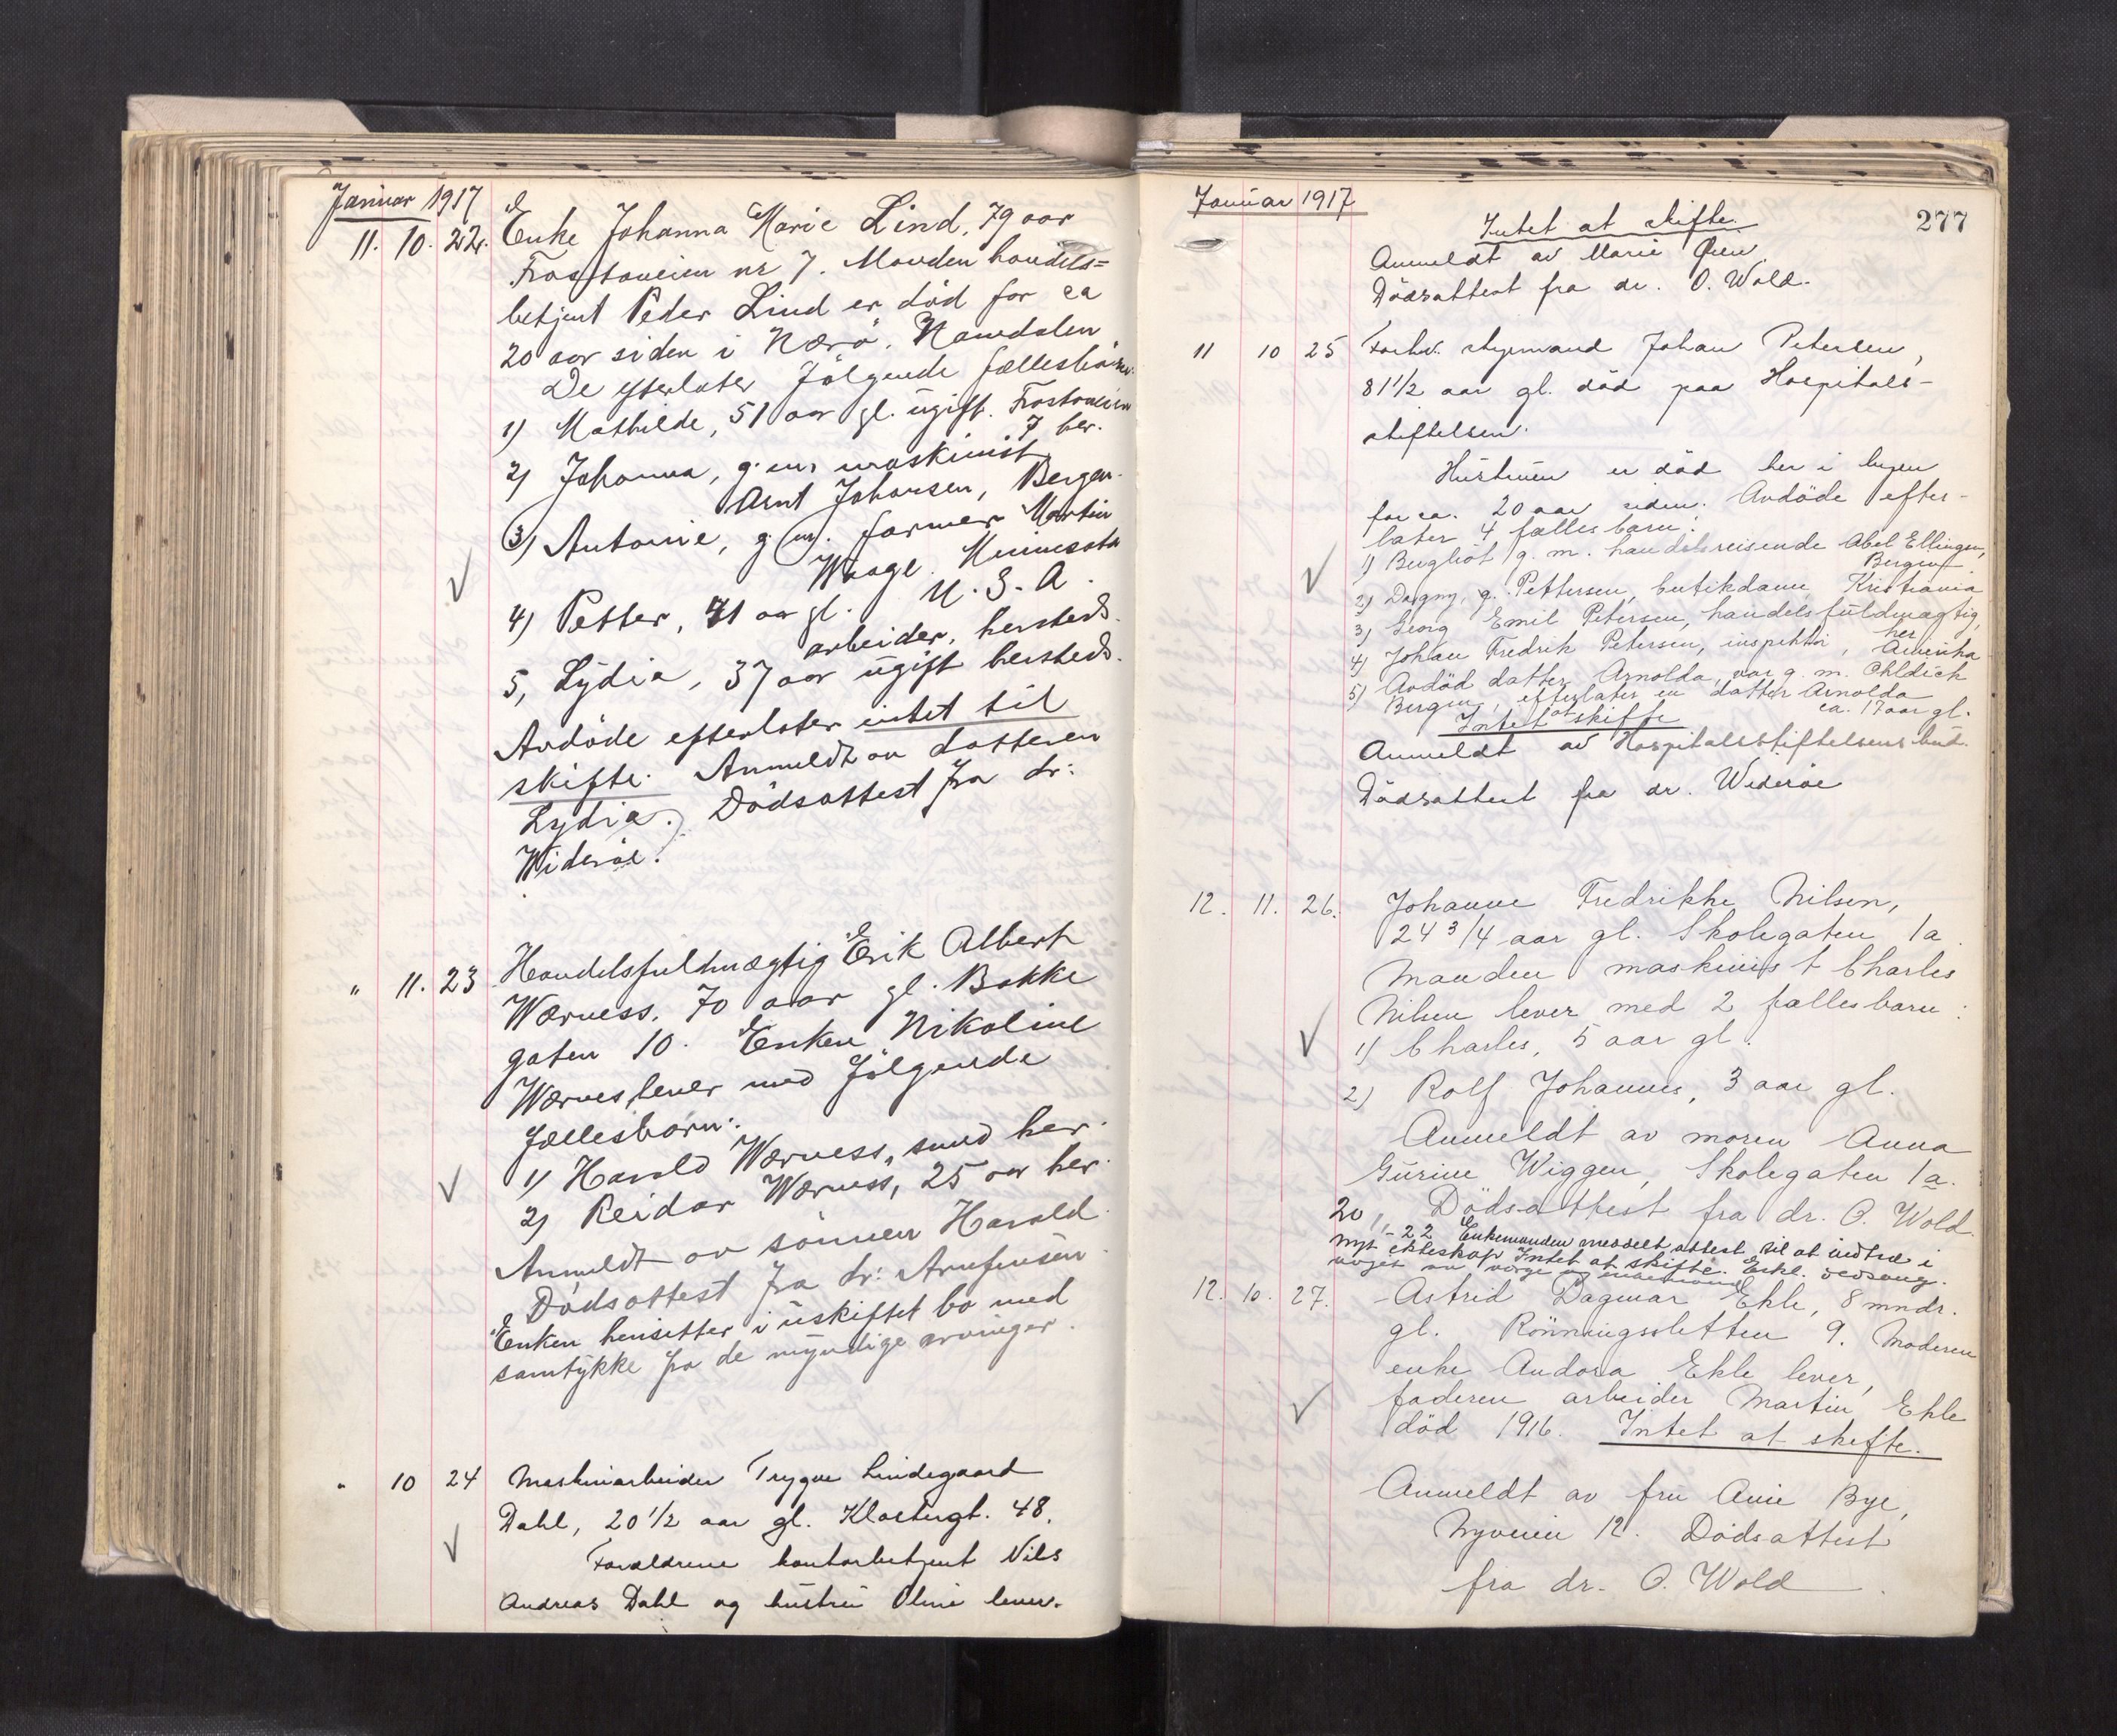 Januar 1917
11. 10. 22. Enke Johanna Marie Lind, 79 aar
Frostaveien nr 7. Manden handels=
betjent Peder Lind er död for ca
20 aar siden i Nærö. Namdalen
De efterlater följgende fællesbörn
1) Mathilde, 51 aar gl. ugift. Frostaveien
7 her.
2) Johanna, g. m. maskinist
Arnt Johansen, Bergen.
3) Antonie, g. m. farmer Martin
Waage. Minnesota
U. S. A.
4) Petter, 41 aar gl.
arbeider, hersteds.
5, Lydia, 37 aar ugift hersteds.
Avdöde efterlater intet til
skifte. Anmeldt av datteren
Lydia. Dödsattest fra dr:
Wideröe.
" 11. 23 Handelsfuldmægtig Erik Albert
Wærness. 70 aar gl. Bakke
gaten 10. Enken Nikoline
Wærnes lever med följgende
fællesbörn:
1) Harald Wærness, smed her.
2) Reidar Wærness, 25 aar her.
Anmeldt av sönnen Harald.
Dödsattest fra dr:
Enken hensitter i uskiftet bo med
samtykke fra de myndige arvinger.
" 10 24 Maskinarbeider Trygve Lindegaard
Dahl, 20 1/2 aar gl. Klostergt. 48.
Forældrene kontorbetjent Nils
Andreas Dahl og hustru Oline lever.
Januar 1917
277
Intet at skifte.
Anmeldt av Marie Öien
Dödsattest fra dr. O. Wold.
11 10 25 Forhv. styrmand Johan Petersen,
81 1/2 aar gl. död paa Hospitals-
stiftelsen.
Hustruen er död her i byen
for ca. 20 aar siden. Avdöde efter-
later 4 fællesbarn:
1) Bergliot g. m. handelsreisende Abel Ellingsen,
Bergen
2) Dagny, g. Pettersen, butikdame, Kristiania
3) Georg Emil Petersen, handelsfuldmægtig,
her
4) Johan Fredrik Petersen, inspektör, Amerika
5) Avdöd datter Arnolda, var g. m. Ohldick
Bergen, efterlater en datter Arnolda
ca. 17 aar gl.
Intet at skifte
Anmeldt av Hospitalsstiftelsens bud.
Dödsattest fra dr. Wideröe
12. 11. 26. Johanne Fredrikke Nilsen,
24 3/4 aar gl. Skolegaten 1a.
Manden maskinist Charles
Nilsen lever med 2 fællesbarn:
1) Charles, 5 aar gl.
2) Rolf Johannes, 3 aar gl.
Anmeldt av moren Anna
Gurine Wiggen, Skolegaten 1a.
Dödsattest fra dr. O. Wold
20/11-22 Enkemanden meddelt attest til at indtræ i
nyt ekteskap Intet at skifte. Erkl. vedsaug.
av verge
12. 10. 27. Astrid Dagmar Ekle, 8 mndr.
gl. Rönningsletten 9. Moderen
enke Andora Ekle lever,
faderen arbeider Martin Ekle
död 1916. Intet at skifte.
Anmeldt av fru Anie Bye,
Nyveien 12. Dödsattest
fra dr. O. Wold